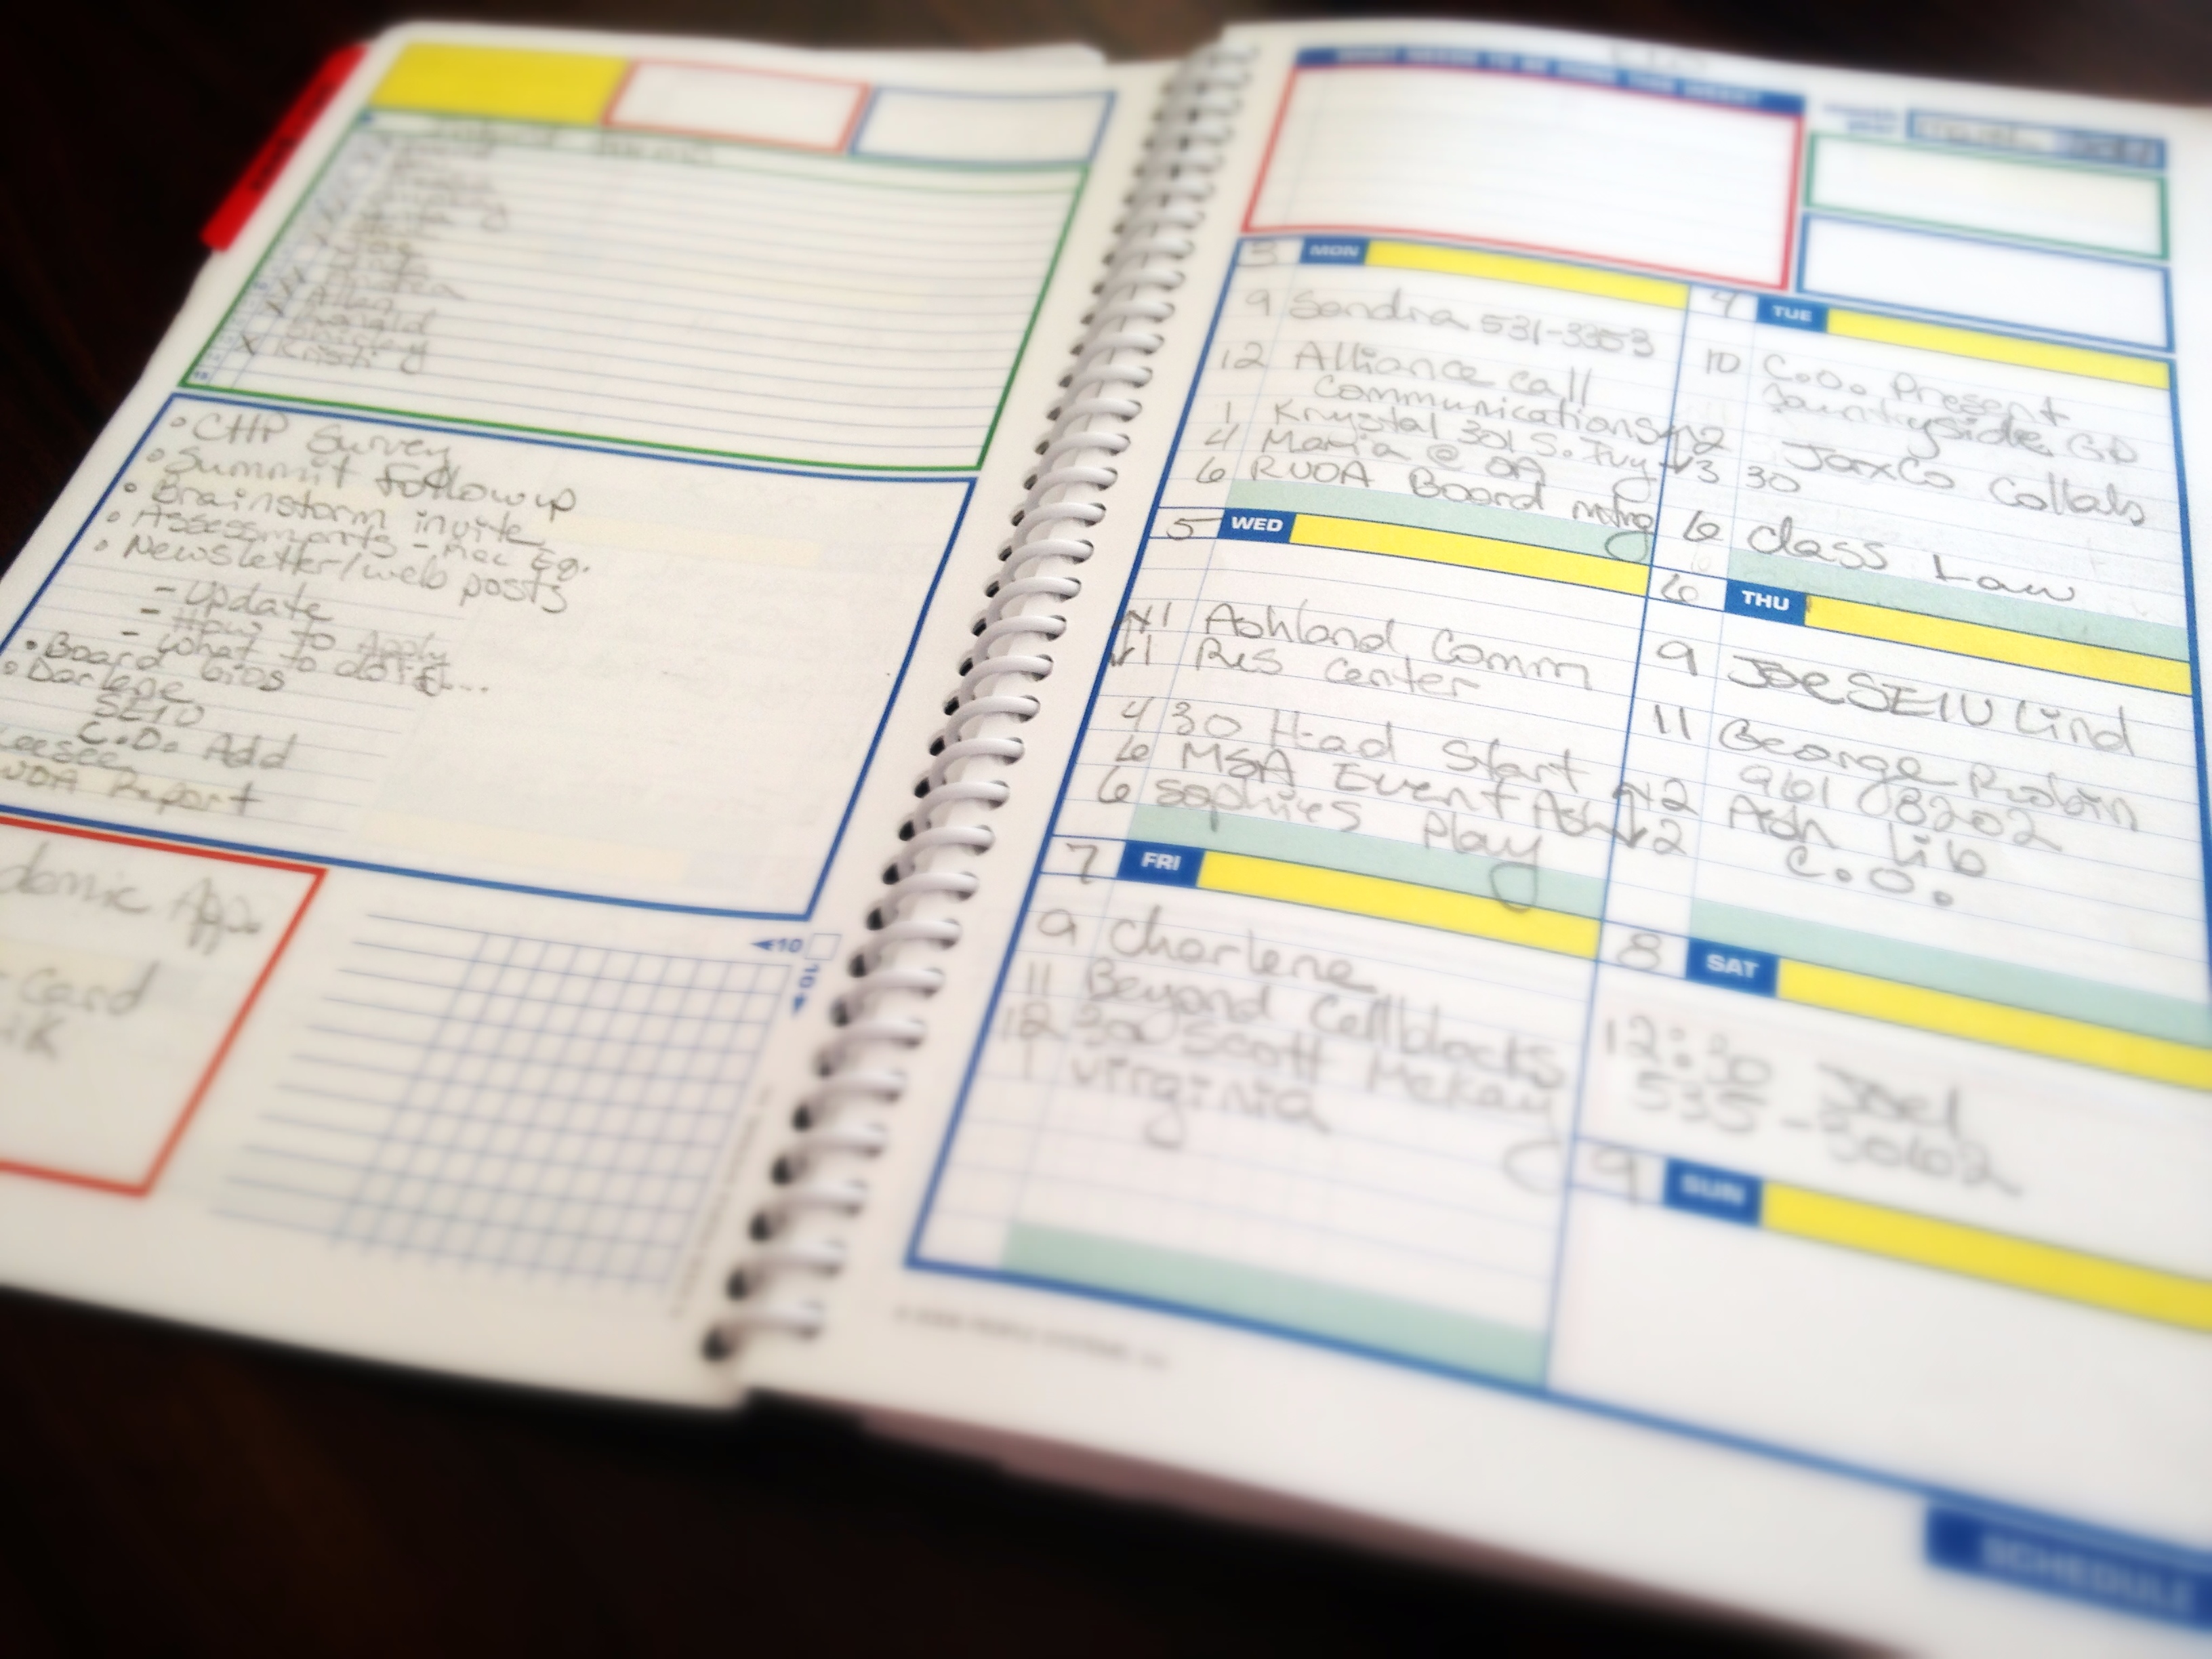 Allen
Donald
Shirley
x Kristi
• CHP Survey
• Summit Followup
• Brainstorm invite
• Assessments - Rec Eq.
• Newsletter/web posts
- Update
- How to Apply
- What to do if...
• Board bios
• Darlene
SEIU
C.O. Add
Report
demic App.
Card
WHAT NEEDS TO BE DONE THIS WEEK?
3 MON
9 Sandra 531-3353
12 Alliance call
Communications
1 Krystal 301 S. Ivy
4 Maria @ OA
6 RVOA Board mtng
4 TUE
10 C.O. Present
Countryside GP
12 JaxCo Collab
3 30
6 Class Law
5 WED
11 Ashland Comm
1 Res Center
4 30 Head Start
6 MSA Event Ash
6 Sophies Play
6 THU
9 Joe SEIU Lind
11 George Robin
961 8202
12 Ash Lib
2 C.O.
7 FRI
9 Charlene
11 Beyond Cellblocks
12 30 Scott McKay
1 Virginia
8 SAT
12:30 Joel
535-3062
9 SUN
◀10
10
SCHEDULE